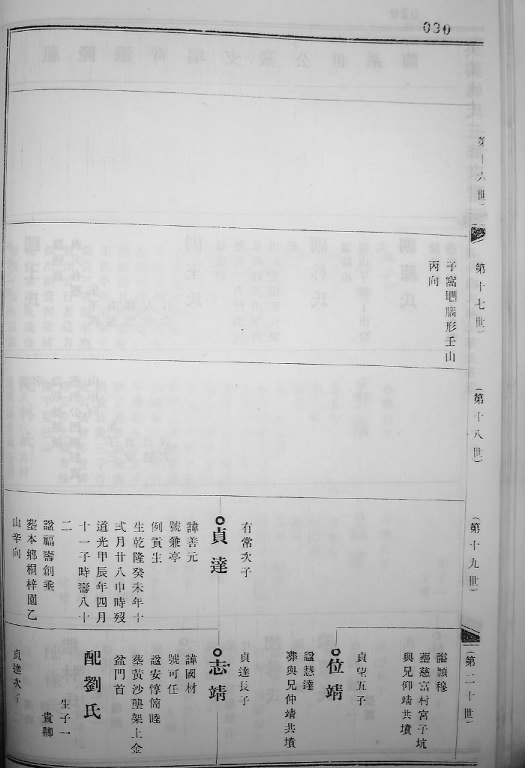 030
第十六世
第十七世
子窩
腦形壬山
丙向
第十八世
第十九世
右常次子
貞達
諱善元
號兼亭
例貢生
生乾隆癸未年十
弍月廿八申時歿
道光甲辰年四月
十一子時壽八十
二
諡福壽創垂
塟本鄉桐梓園乙
山辛向
第二十世
諡穎穆
塟慈富村宮子坑
與兄仰靖共墳
貞望五子
位靖
諡慧達
塟與兄仲靖共墳
貞達長子
志靖
諱國材
號可任
諡安惇簡睦
塟黃沙壟架上金
盆門首
配劉氏
生子一
貴卿
貞達次子